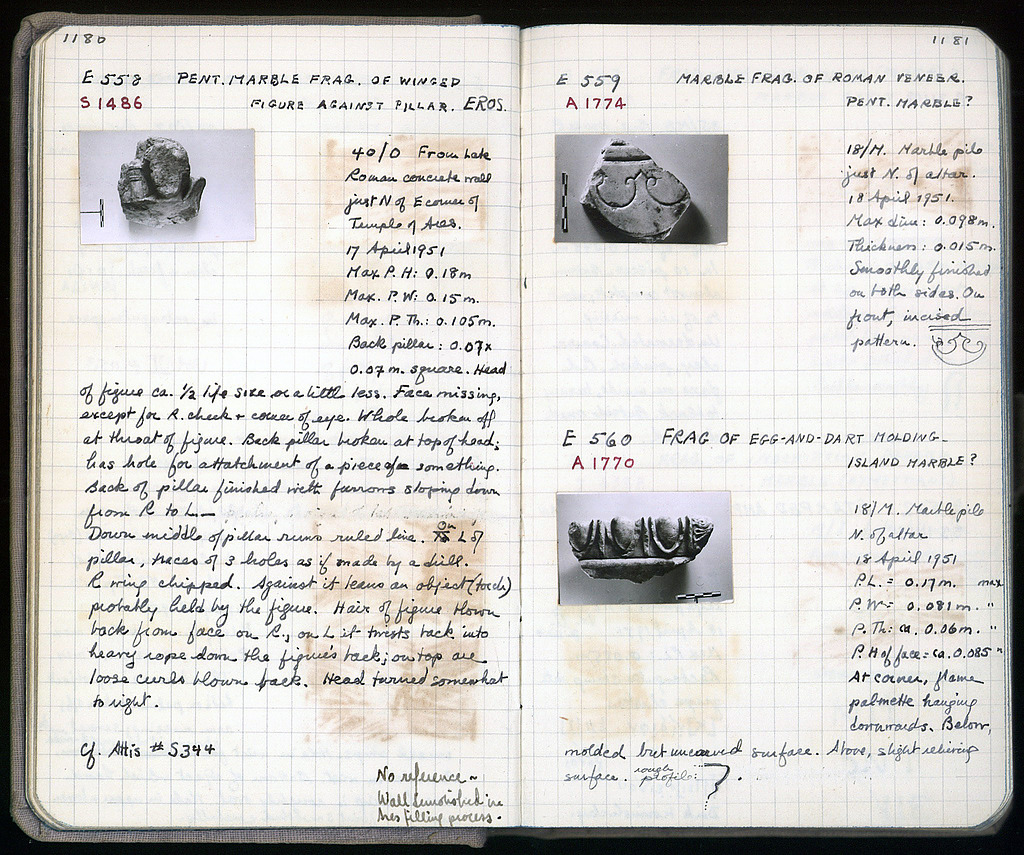 1180
E 558 PENT. MARBLE FRAG. OF WINGED
S 1486 FIGURE AGAINST PILLAR. EROS.
40/O From Late
Roman concrete wall
just N of E corner of
Temple of Ares.
17 April 1951
Max P. H: 0.18m
Max. P. W: 0.15 m.
Max. P. Th.: 0.105m.
Back pillar: 0.07 x
0.07 m. square. Head
of figure ca. 1/2 life size or a little less. Face missing,
except for R. cheek + corner of eye. Whole broken off
at throat of figure. Back pillar broken at top of head;
has hole for attatchment of a piece of something.
Back of pillar finished with furrows sloping down
from R to L —
Down middle of pillar runs ruled line. On L of
pillar, traces of 3 holes as if made by a drill.
R wing chipped. Against it leans an object (torch)
probably held by the figure. Hair of figure blown
back from face on R., on L it twists back into
heavy rope down the figure's back; on top are
loose curls blown back. Head turned somewhat
to right.
Cf. Attis # S344
No reference ~
Wall demolished in
Ares filling process.
1181
E 559 MARBLE FRAG. OF ROMAN VENEER.
A 1774 PENT. MARBLE?
18/M. Marble pile
just N. of altar.
18 April 1951.
Max dim: 0.098m.
Thickness: 0.015m.
Smoothly finished
on both sides. On
front, incised
pattern.
E 560 FRAG OF EGG-AND-DART MOLDING_
A 1770 ISLAND MARBLE?
18/M. Marble pile
N. of altar
18 April 1951
P.L. = 0.17m. max
P.W= 0.081m. "
P. Th: ca. 0.06m. "
P. H of face = ca. 0.085 "
At corner, flame
palmette hanging
downwards. Below,
molded but uncarved surface. Above, slight relieving
surface. rough profile: